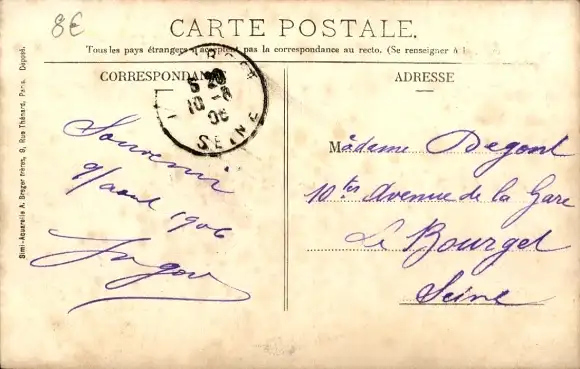 8€
CARTE POSTALE.
Tous les pays étrangers n'acceptent pas la correspondance au recto. (Se renseigner à l
CORRESPONDANCE
ADRESSE
5 20
10 -8
06
SEINE
Souvenir
9/août 1906
Madame Degent
10ter Avenue de la Gare
Le Bourget
Seine
Simi-Aquarelle A. Breger frères, 9, Rue Thénard, Paris. Déposé.